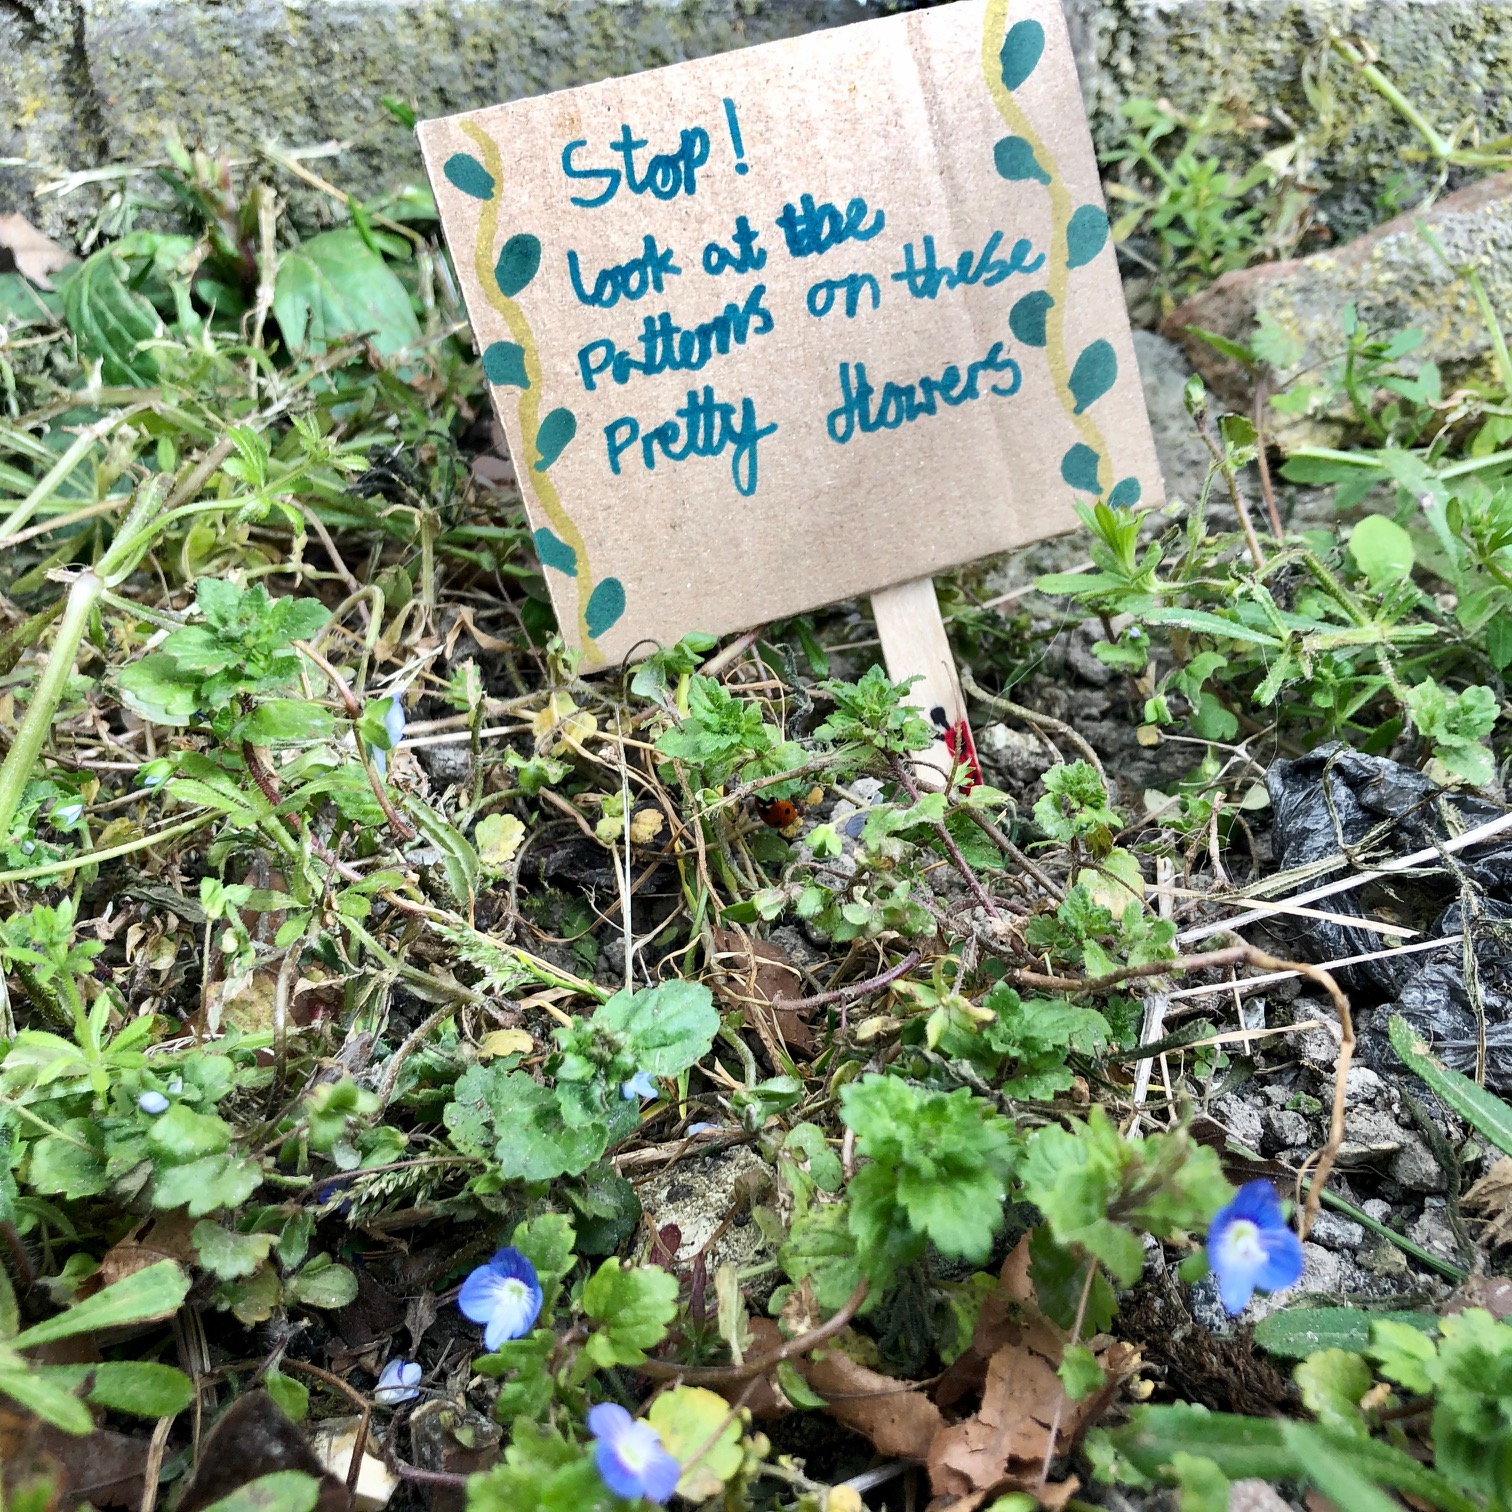 Stop!
look at the
Patterns on these
Pretty flowers